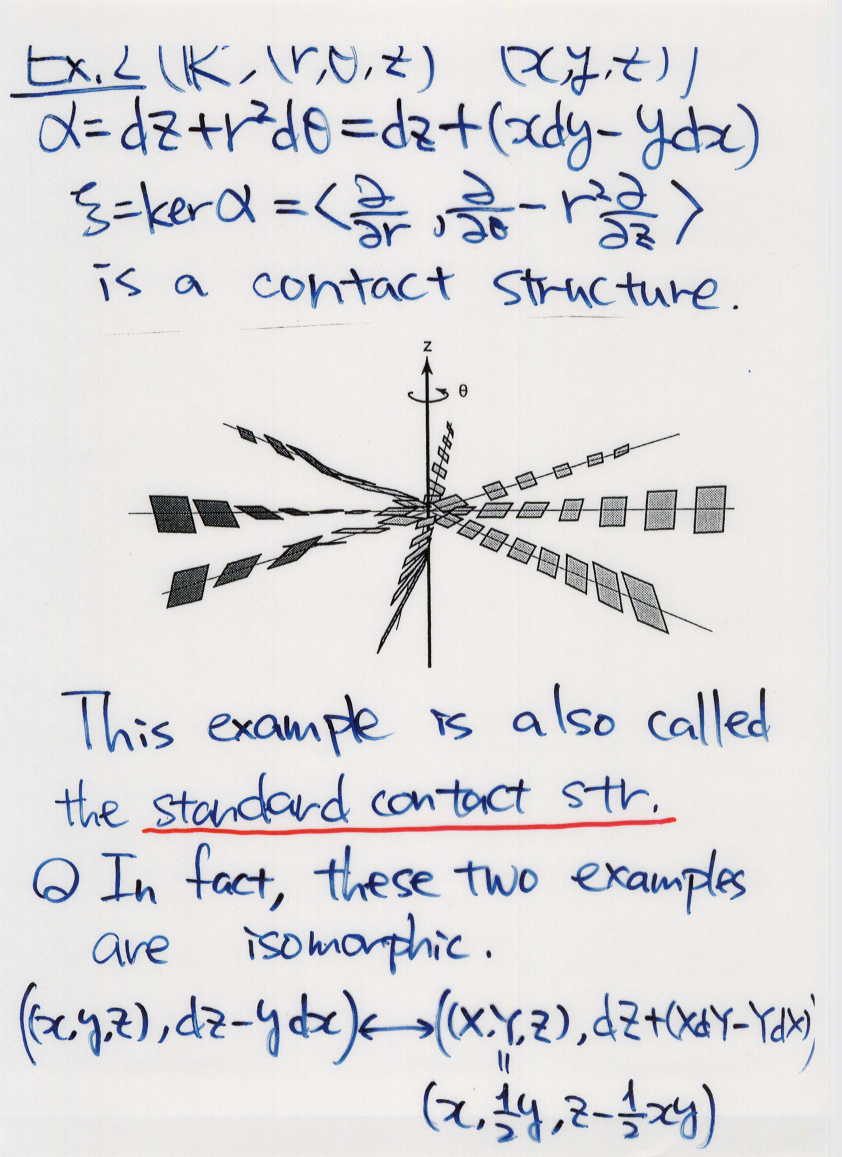 Ex.2 (ℝ, (r,θ,z) (x,y,z))
α=dz+r²dθ=dz+(xdy-ydx)
ξ=kerα=<∂/∂r, ∂/∂θ - r²∂/∂z>
is a contact structure.
z
θ
This example is also called
the standard contact str.
In fact, these two examples
are isomorphic.
((x,y,z), dz-ydx)↔((X,Y,Z), dZ+(XdY-YdX))
=
(x, ½y, z-½xy)